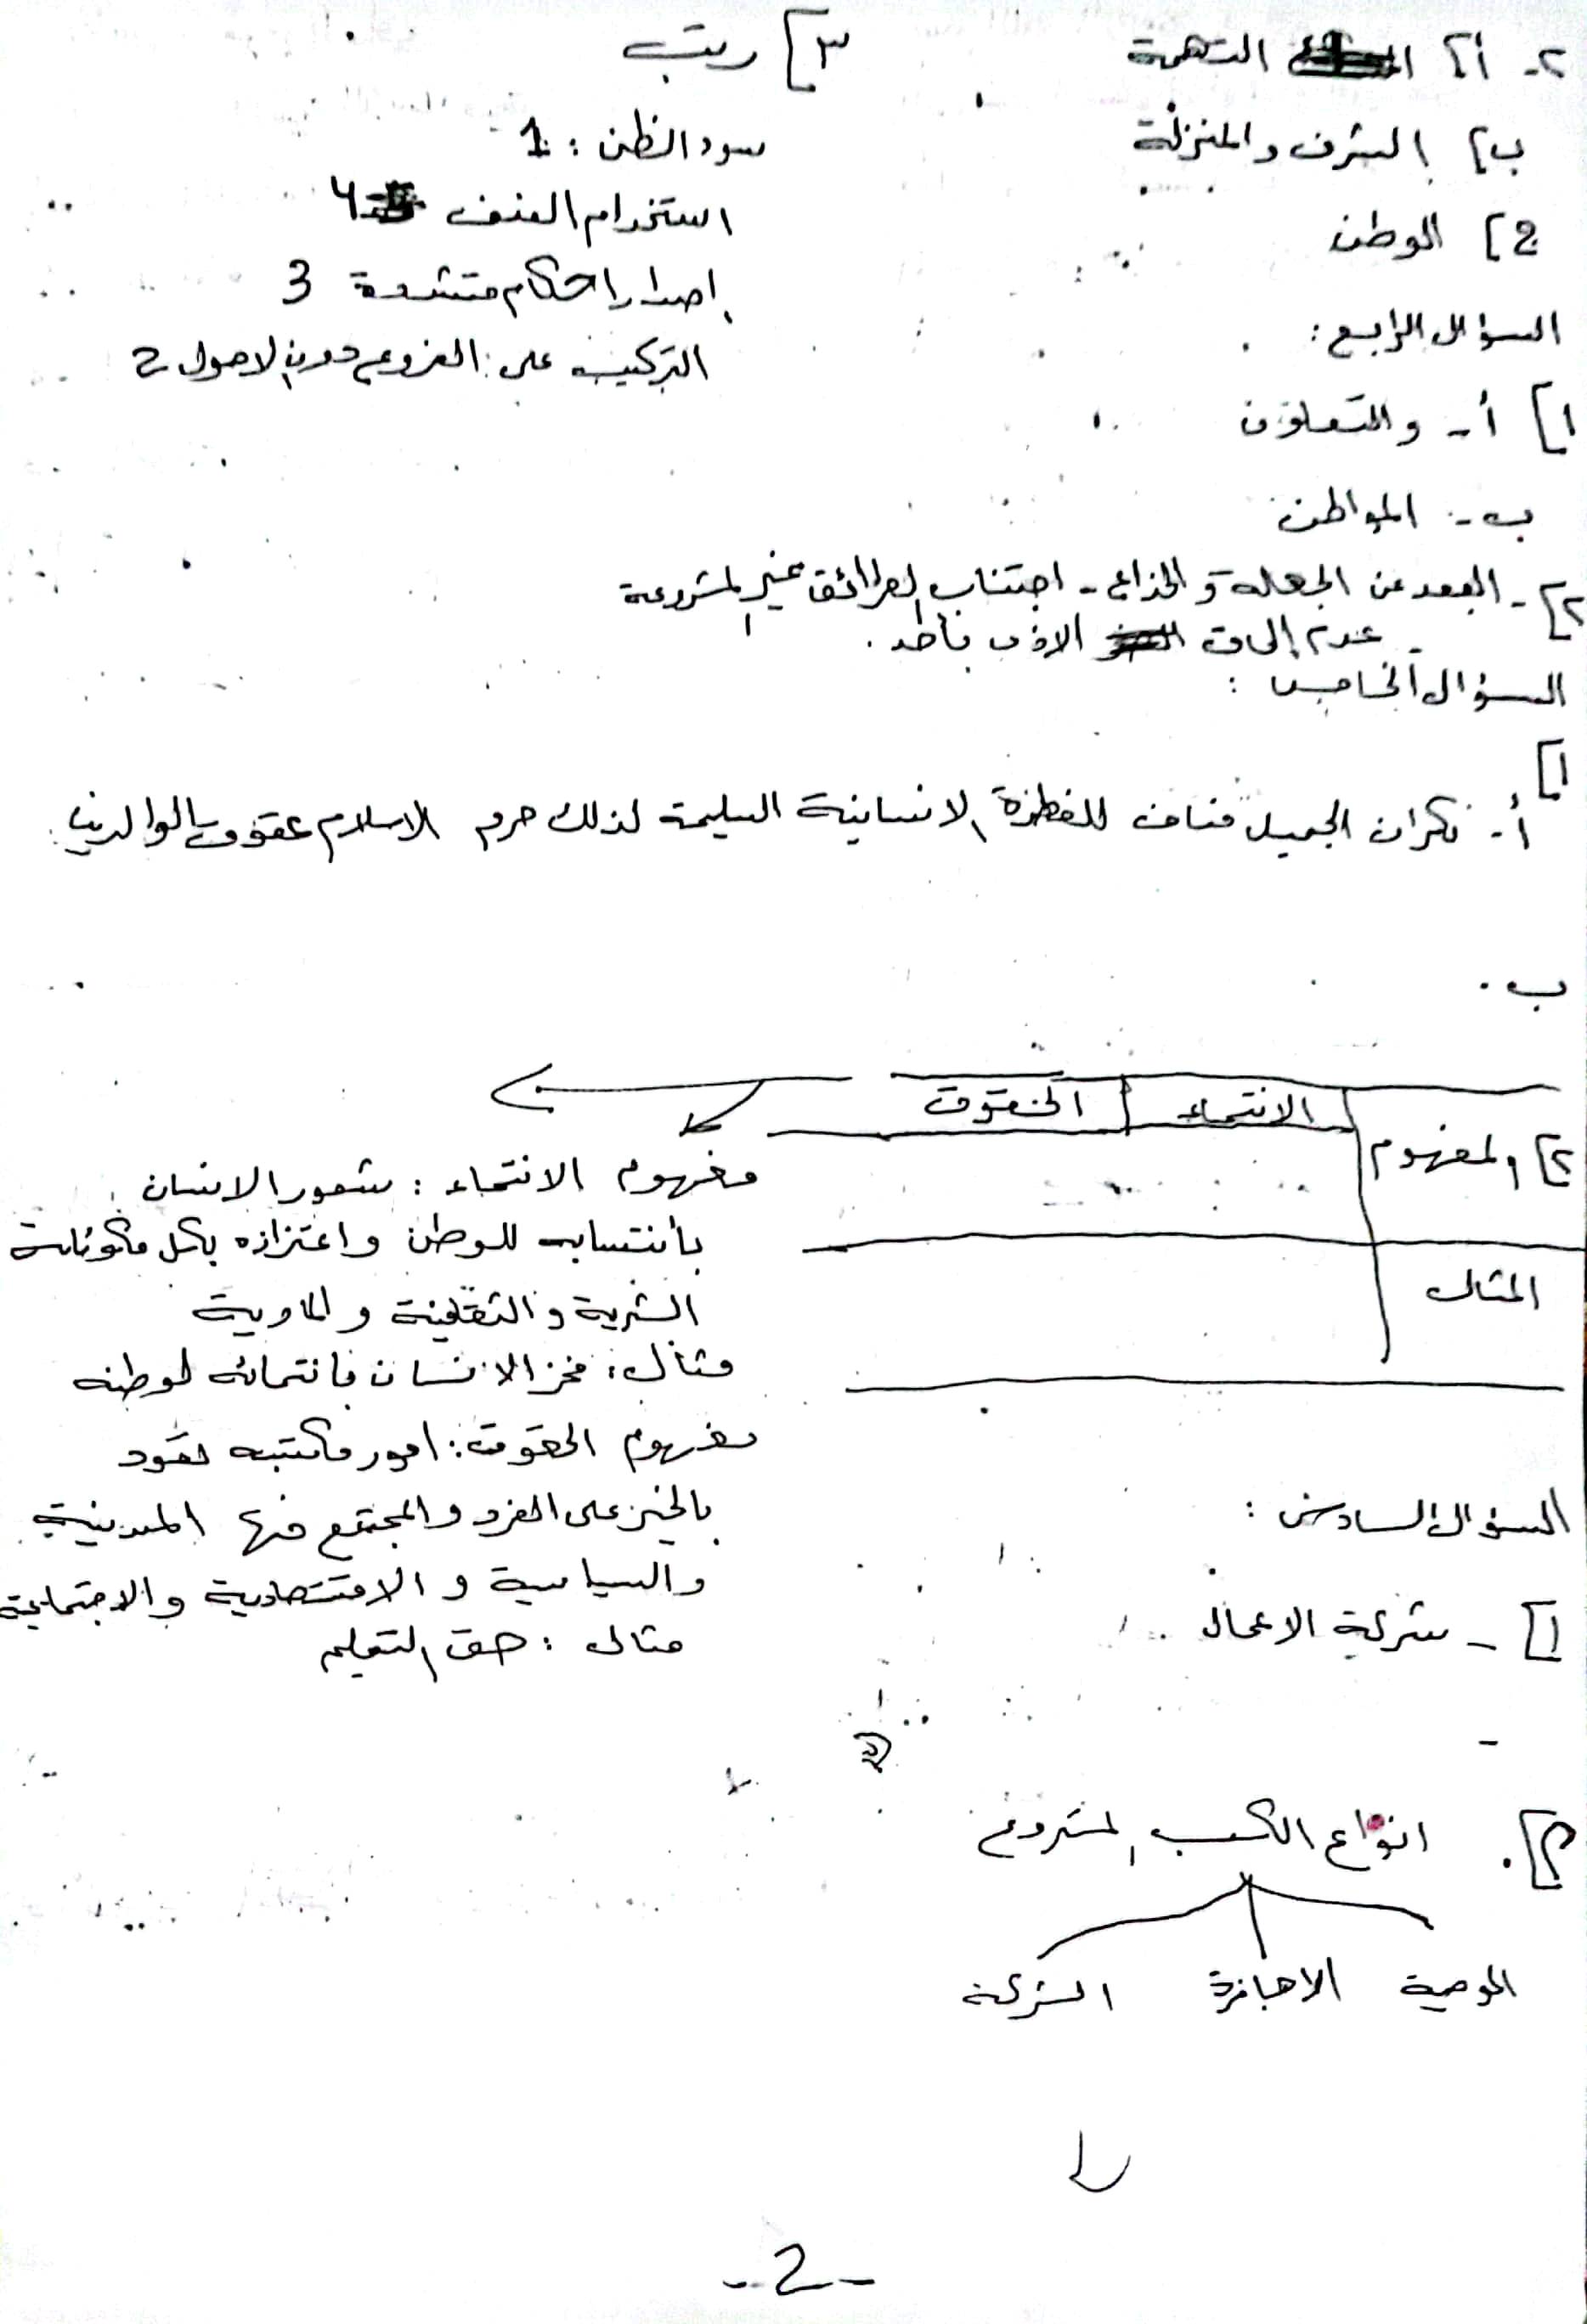 ٢- أ] التهمة
ب] الشرف والمنزلة
2] الوطن
السؤال الرابع:
١] أ- والتعاون
ب- المواطن
٢]- البعد عن الجهلة والخداع - اجتناب الطرائق غير المشروعة
- عدم إلحاق الاذى بأحد.
السؤال الخامس:
١]
أ- نكران الجميل مناف للفطرة الانسانية السليمة لذلك حرم الاسلام عقوق الوالدين.
ب.
الانتماء | الحقوق
٢] المفهوم
المثال
السؤال السادس:
١] - شركة الاعمال
-
٢]. انواع الكسب المشروع
الوصية الاجازة الشركة
٣] رتب
سوء الظن: 1
استخدام العنف 4
إصدار احكام متشددة 3
التركيب على الفروع دون الاصول 2
مفهوم الانتماء: شعور الانسان
بأنتسابه للوطن واعتزازه بكل مكوناته
البشرية والثقافية والمادية
مثال: فخر الانسان بانتمائه لوطنه
مفهوم الحقوق: امور مكتبه تقود
بالخير على الفرد والمجتمع منها المدينية
والسياسية والاقتصادية والاجتماعية
مثال: حق التعليم
-2-